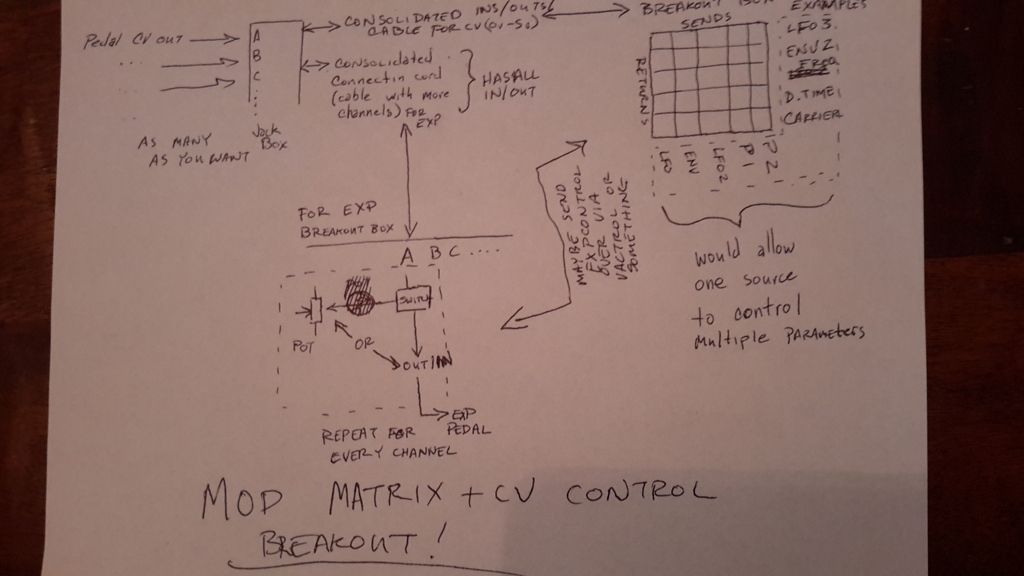 Pedal CV OUT
...
A
B
C
AS MANY
AS YOU WANT
Jack
Box
CONSOLIDATED INS/OUTS
CABLE FOR CV
CONSOLIDATED
Connectin cord
(cable with more
channels) FOR
EXP
HAS ALL
IN/OUT
BREAKOUT
SENDS
RETURNS
EXAMPLES
LFO 3
ENV 2
D.TIME
CARRIER
LFO
ENV
LFO2
P1
P2
would allow
one source
to control
multiple PARAMETERS
MAYBE SEND
EXP CONTROL
OVER VIA
VACTROL OR
SOMETHING
FOR EXP
BREAKOUT BOX
A B C ....
SWITCH
POT
OR
OUT/IN
EXP
PEDAL
REPEAT FOR
EVERY CHANNEL
MOD MATRIX + CV CONTROL
BREAKOUT!